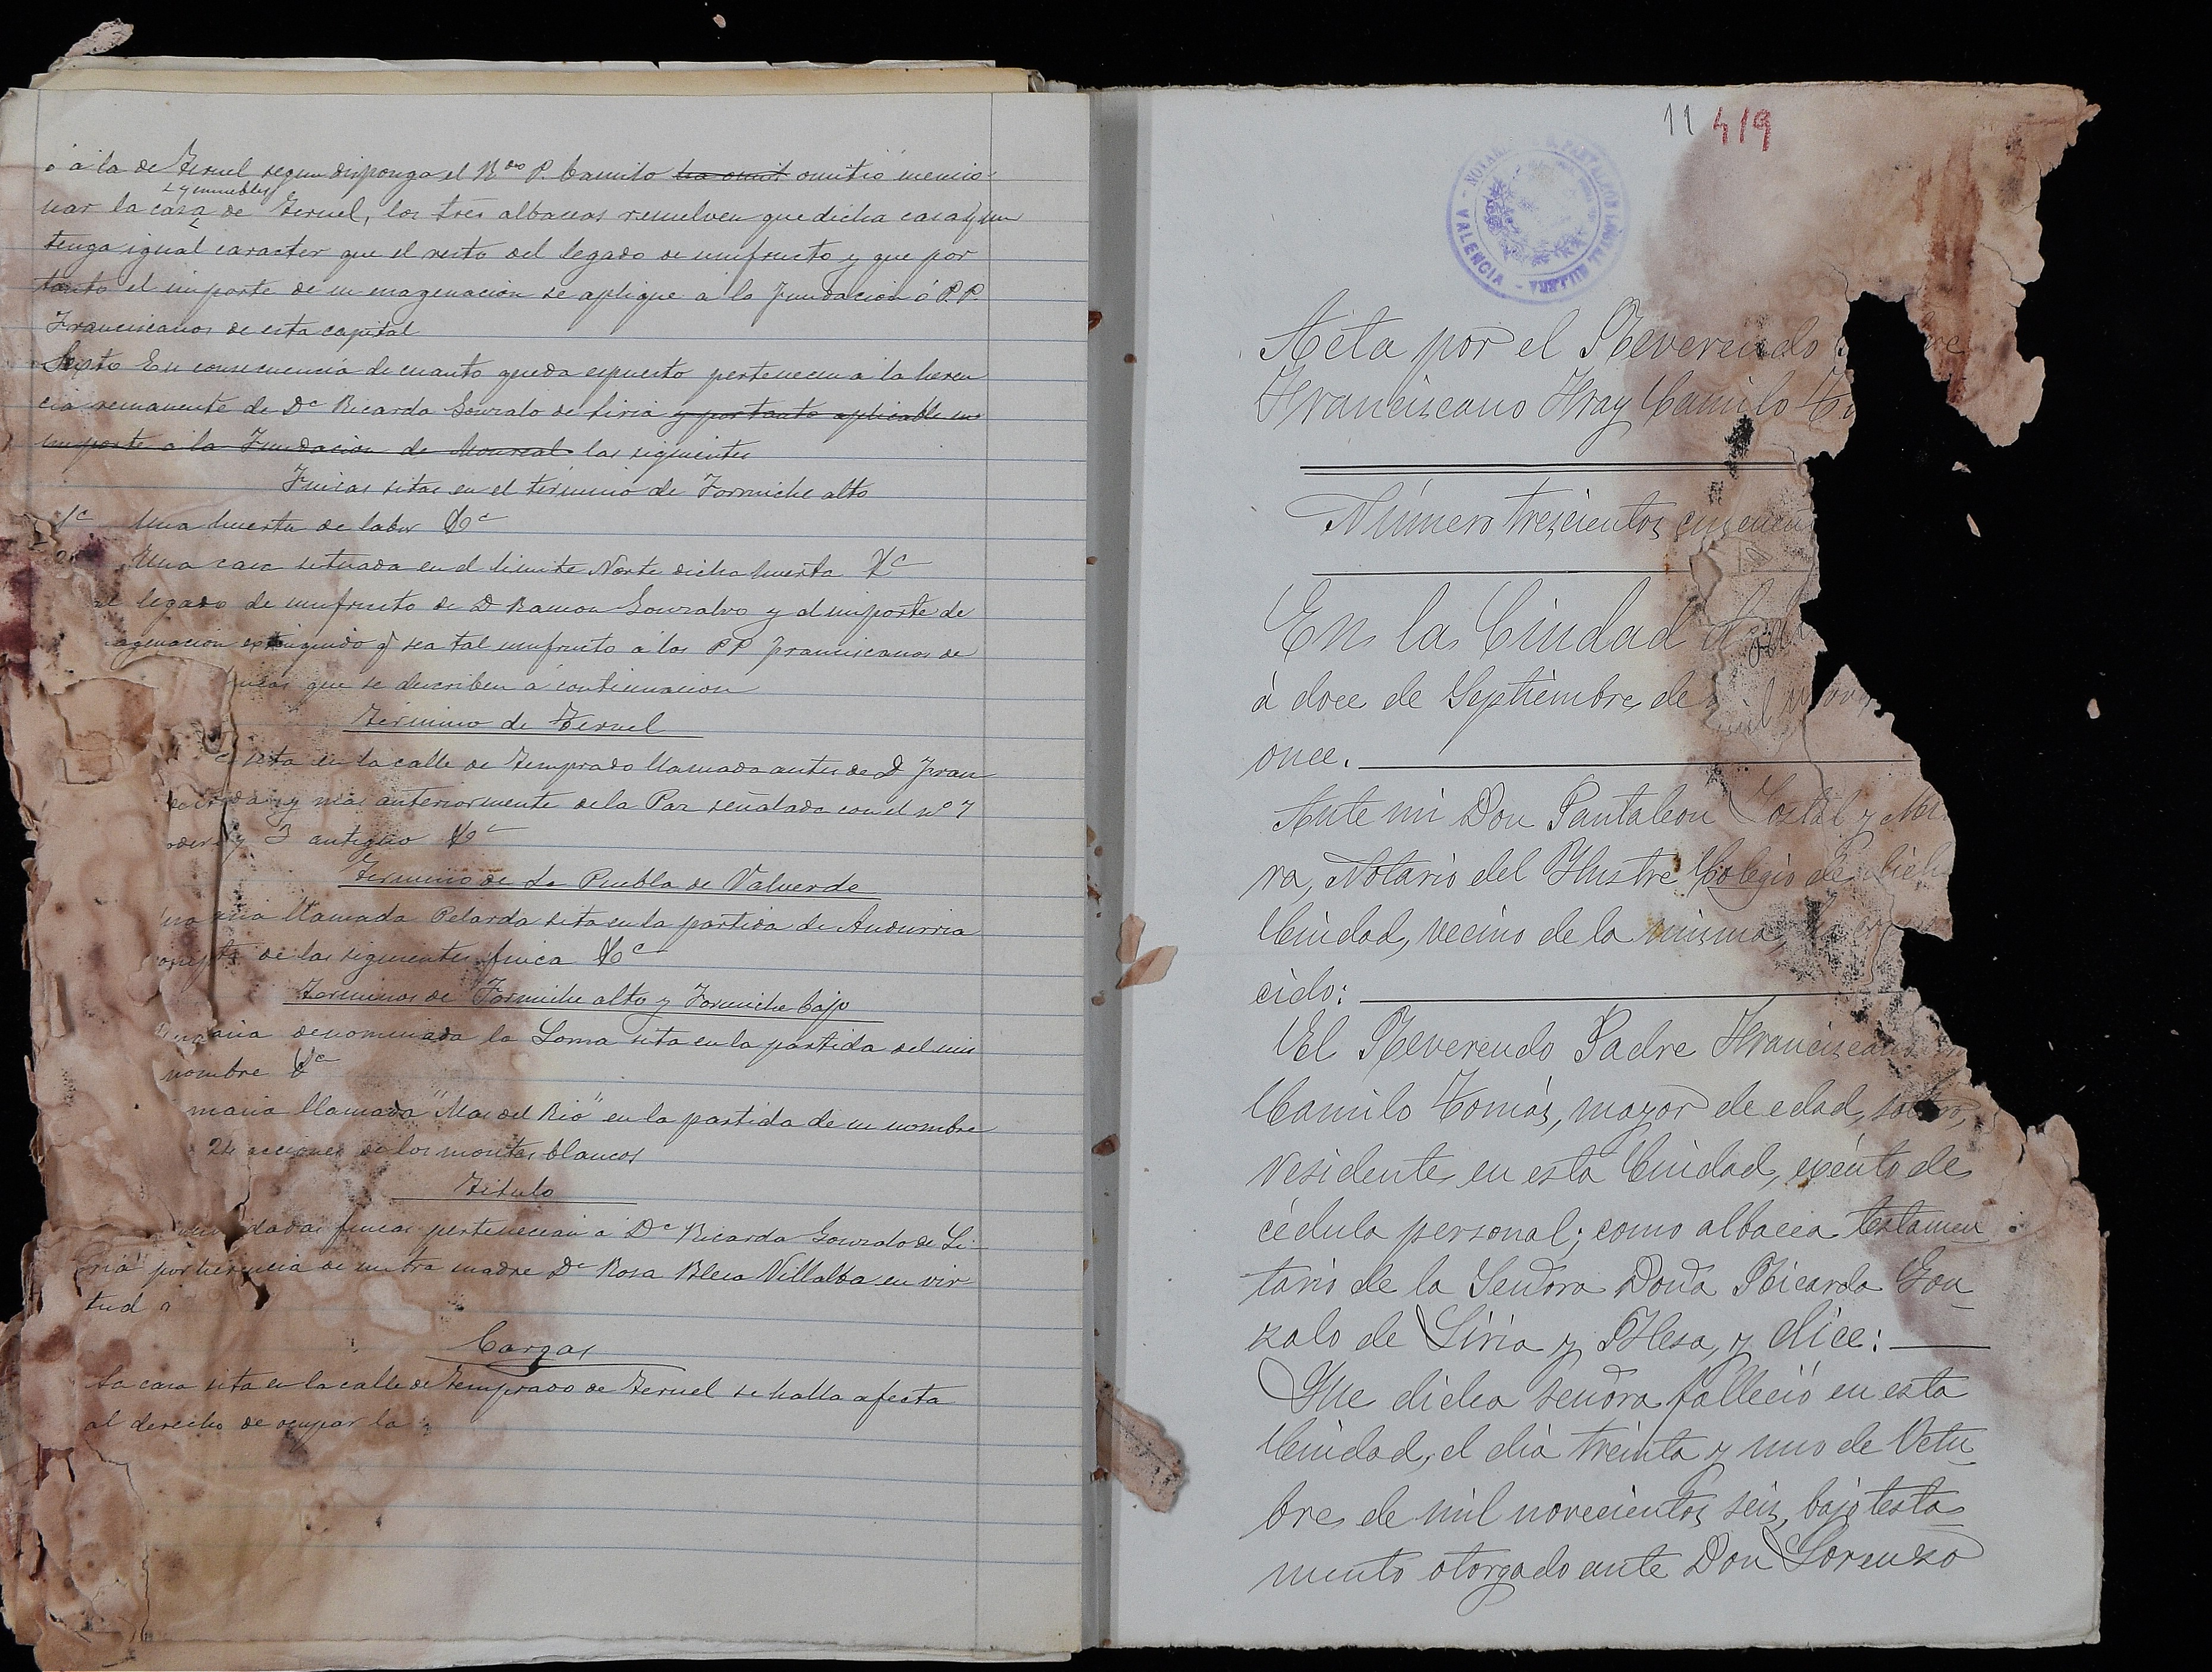 ó á la de Teruel segun disponga el Rdo P. Camilo ha omit omitió mencio-
y muebles
nar la casa de Teruel, los tres albaceas resuelven que dicha casa y
tenga igual caracter que el resto del legado de usufructo y que por
tanto el importe de su enagenacion se aplique á la Fundacion ó P.P.
Franciscanos de esta capital
Sexto En consecuencia de cuanto queda espuesto pertenecen a la heren
cia remanente de Dª Ricarda Gonzalo de Liria y por tanto aplicable su
importe a la Fundacion de Monreal las siguientes
Fincas sitas en el término de Formiche alto
1ª Una huerta de labor &ª
Una casa situada en el limite Norte dicha huerta &ª
al legado de usufructo de D Ramon Gonzalvo y el importe de
agenacion extinguido q sea tal usufructo á los PP franciscanos de
fincas que se describen á continuacion
Término de Teruel
sita en la calle de Temprado llamada antes de D Fran
y mas anteriormente de la Paz señalada con el nº 7
y 3 antiguo &ª
Termino de La Puebla de Valverde
llamada Pelarda sita en la partida de Andurria
de las siguientes finca &ª
Terminos de Formiche alto y Formiche bajo
denominada la Loma sita en la partida del mis
nombre &ª
masia llamada "Mas del Rio" en la partida de su nombre
24 acciones de los montes blancos
Titulo
dadas fincas pertenecian a Dª Ricarda Gonzalo de Li-
ria por herencia de su tra madre Dª Rosa Blesa Villalba en vir
tud
Cargas
La casa sita en la calle de Temprado de Teruel se halla afecta
al derecho de ocupar la
11 419
VALENCIA
Acta por el Reverendo
Franciscano Fray Camilo
Número trescientos cincuen
En la Ciudad de
á doce de Septiembre de mil nove
once.
Ante mi Don Pantaleon Lostal y
ra, Notario del Ilustre Colegio de dich
Ciudad, vecino de la misma,
cido:
El Reverendo Padre Franciscano
Camilo Tomás, mayor de edad, soltero,
residente en esta Ciudad, exento de
cédula personal; como albacea testamen
tario de la Señora Doña Ricarda Gon
zalo de Liria y Blesa, y dice:
Que dicha señora falleció en esta
Ciudad, el dia treinta y uno de Octu
bre de mil novecientos seis, bajo testa
mento otorgado ante Don Lorenzo